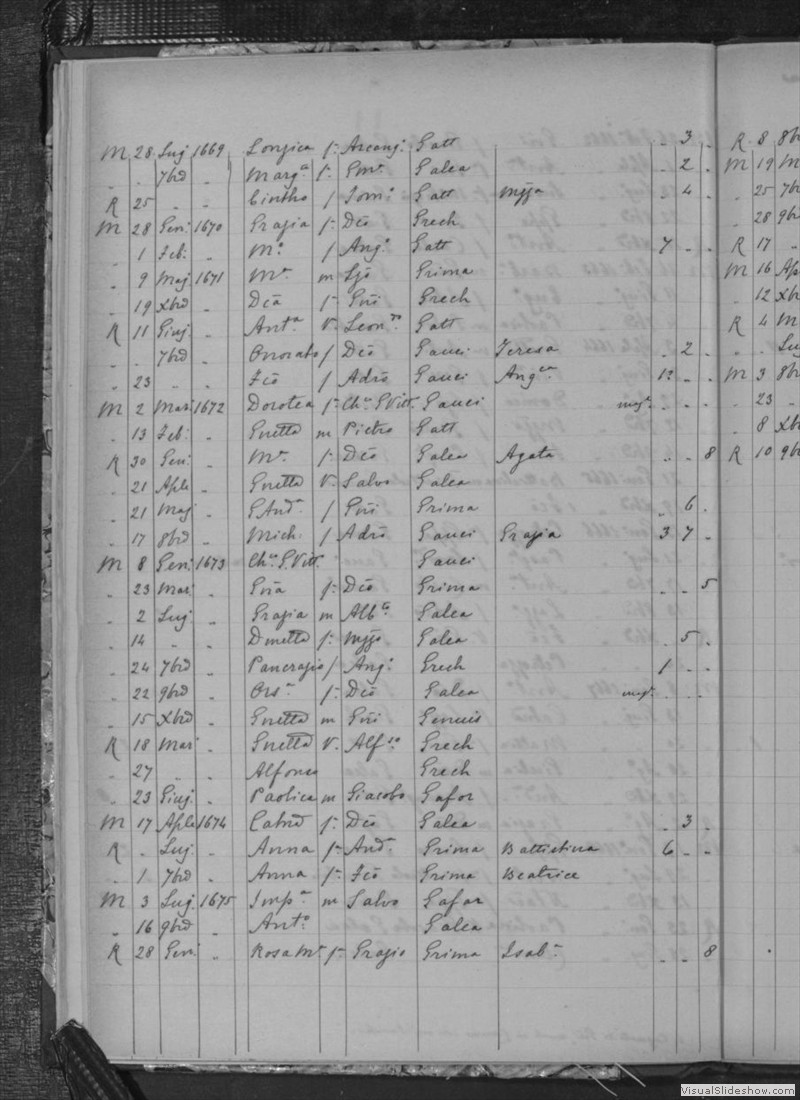 M 28 Lug 1669 Longica f. Arcang. Gatt 3
" " 7brd " Marga f. Gme. Galea 2
R 25 " " Cintho f Tomo Gatt Myja 4
M 28 Gen. 1670 Grazia f. Dco Grech
" 1 Feb. " Mo f Ango Gatt 7
" 9 Maj 1671 Ma m Ljo Grima
" 19 Xbrd " Dca f. Gni Grech
R 11 Giuj. " Anta V. Leonro Gatt
" " 7brd " Onorato f Dco Gauci Teresa 2
" 23 " " Fco f Adrio Gauci Angca
M 2 Mar. 1672 Dorotea f. Cho G Vitt. Gauci
" 13 Feb. " Gnetta m Pietro Gatt
R 30 Gen. " Ma f. Dco Galea Agata 8
" 21 Aple " Gnetta V. Salvo Galea
" 21 Maj " G Anda f Gni Grima 6
" 17 8brd " Mich. f Adrio Gauci Grazia 3 7
M 8 Gen. 1673 Cho G. Vitt. Gauci
" 23 Mar. " Gna f. Dco Grima 5
" 2 Luj " Grazia m Albto Galea
" 14 " " Dnetta f. Myjo Galea 5
" 24 7brd " Pancrazio f Ango Grech 1
" 22 9brd " Orsa f. Dco Galea
" 15 Xbrd " Gnetta m Gni Genuis
R 18 Mar " Gnetta V. Alfso Grech
" 27 " " Alfonso Grech
" 23 Giuj. " Paolica m Giacobo Gafar
M 17 Aple 1674 Catnd f. Dco Galea 3
R " Luj. " Anna f. Anda Grima Battistina 6
" 1 7brd " Anna f. Fco Grima Beatrice
M 3 Luj. 1675 Impa m Salvo Gafar
" 16 9brd " Anto Galea
R 28 Gen. " Rosa Ma f. Grazio Grima Isaba 8
R 8 8b
M 19 M
" 25 7b
" 28 9b
R 17 "
M 16 Ap
" 12 Xb
R 4 M
" " Lu
M 3 8b
" 23 "
" 8 Xb
R 10 9b
VisualSlideshow.com